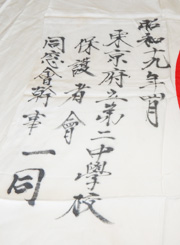 昭和十九年四月
東京府立第二中學校
保護者會
同窓會幹事一同